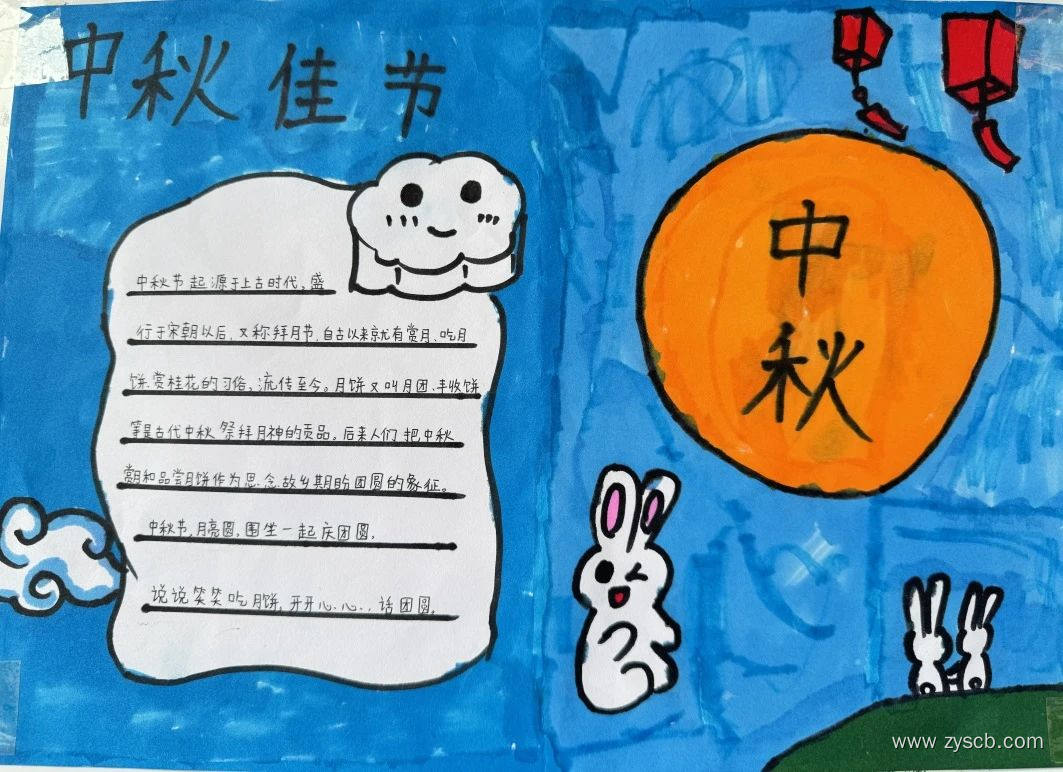 中秋佳节
中秋节起源于上古时代,盛
行于宋朝以后,又称拜月节,自古以来就有赏月、吃月
饼、赏桂花的习俗、流传至今。月饼又叫月团、丰收饼
等是古代中秋祭拜月神的贡品。后来人们把中秋
赏月和品尝月饼作为思念故乡期盼团圆的象征。
中秋节,月亮圆,围坐一起庆团圆,
说说笑笑吃月饼,开开心心..话团圆。
中
秋
www.zyscb.com